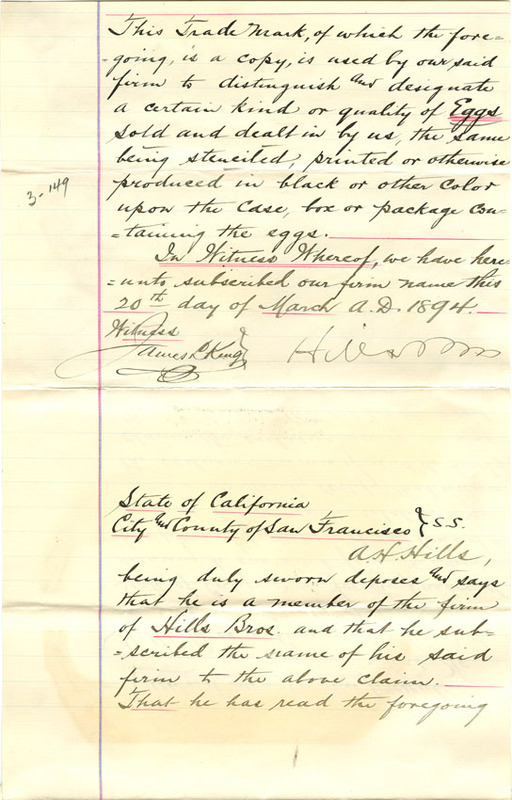 This Trade Mark, of which the fore=
=going, is a copy, is used by our said
firm to distinguish and designate
a certain kind or quality of Eggs
sold and dealt in by us, the same
being stenciled, printed or otherwise
3-149
produced in black or other color
upon the case, box or package con=
=taining the eggs.
In Witness Whereof, we have here
=unto subscribed our firm name this
20th day of March A.D. 1894.
Witness
James L King } Hills Bros
State of California
City and County of San Francisco } S.S.
A.H. Hills,
being duly sworn deposes and says
that he is a member of the firm
of Hills Bros. and that he sub=
=scribed the name of his said
firm to the above claim.
That he has read the foregoing